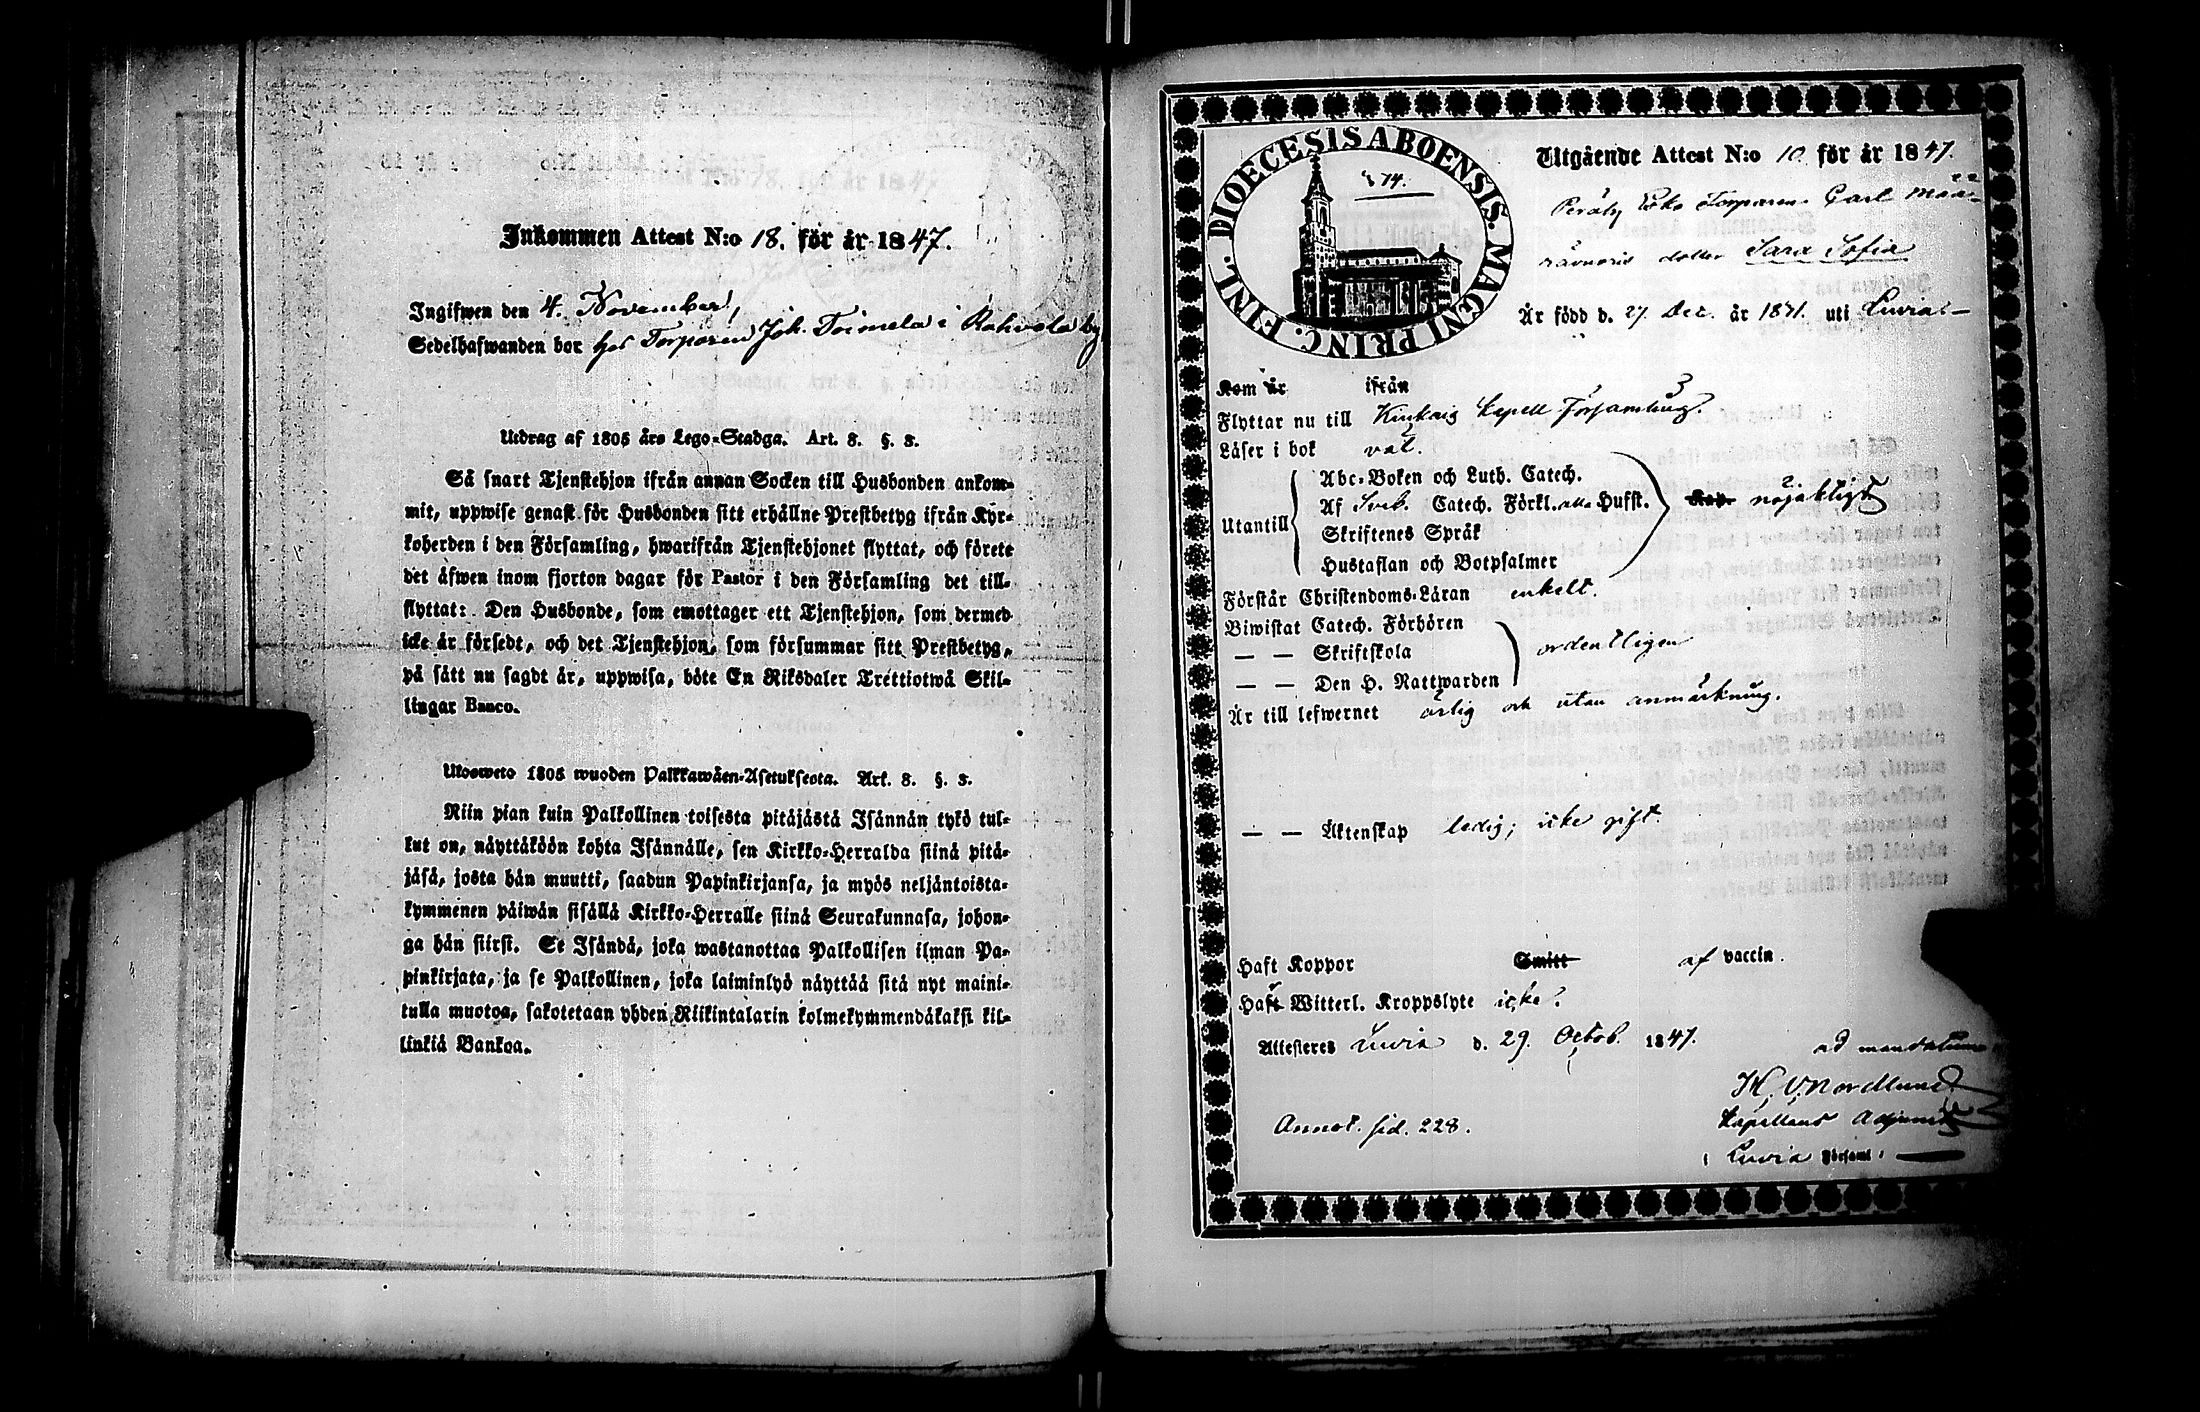 Inkommen Attest N:o 18. för år 1847.
Ingifwen den 4. November,
Sedelhafwanden bor hos Torparen Joh. Toimela i Rahvola by
Utdrag af 1805 års Lego-Stadga. Art. 8. §. 3.
Så snart Tjenstehjon ifrån annan Socken till Husbonden ankom-
mit, uppwise genast för Husbonden sitt erhållne Prestbetyg ifrån Kyr-
koherden i den Församling, hwarifrån Tjenstehjonet flyttat, och förete
det äfwen inom fjorton dagar för Pastor i den Församling det till-
flyttat: Den Husbonde, som emottager ett Tjenstehjon, som dermed
icke är försedt, och det Tjenstehjon, som försummar sitt Prestbetyg,
på sätt nu sagdt är, uppwisa, böte En Riksdaler Trettiotwå Skil-
lingar Banco.
Ulosweto 1805 wuoden Palkkawäen-Asetuksesta. Art. 8. §. 3.
Niin pian kuin Palkollinen toisesta pitäjästä Isännän tykö tul-
kut on, näyttäköön kohta Isännälle, sen Kirkko-Herralda siinä pitä-
jäsä, josta hän muutti, saadun Papinkirjansa, ja myös neljäntoista-
kymmenen päiwän sisällä Kirkko-Herralle siinä Seurakunnasa, johon-
ga hän siirsi. Se Isändä, joka wastanottaa Palkollisen ilman Pa-
pinkirjata, ja se Palkollinen, joka laiminlyö näyttää sitä nyt maini-
tulla muotoa, sakotetaan yhden Riikintalarin kolmekymmendäkaksi kil-
linkiä Bankoa.
DIOECESIS ABOENSIS. MAGNI PRINC. FINL.
74.
Utgående Attest N:o 10. för år 1847.
Peräby Torparen Carl
dotter Sara Sofia
Är född d. 27 Dec. år 1831. uti Luvia
Kom år ifrån
Flyttar nu till Kinkais Kapell Församling.
Läser i bok väl.
Abc-Boken och Luth. Catech.
Utantill Af Sveb. Catech. Förkl. Husst. Kap. nöjaktigt
Skriftenes Språk
Hustaflan och Botpsalmer
Förstår Christendoms-Läran enkelt.
Biwistat Catech. Förhören
— — Skriftskola ordentligen
— — Den H. Nattwarden
Är till lefwernet ärlig och utan anmärkning.
— — Äktenskap ledig; icke gift.
Haft Koppor Smitt af vaccin.
Haft Witterl. Kroppslyte icke.
Attesteres Luvia d. 29. Octob. 1847.
ad mandatum
H. V. Nordlund
Kapellans Adjunct
i Luvia Församl:
Annot. sid. 228.